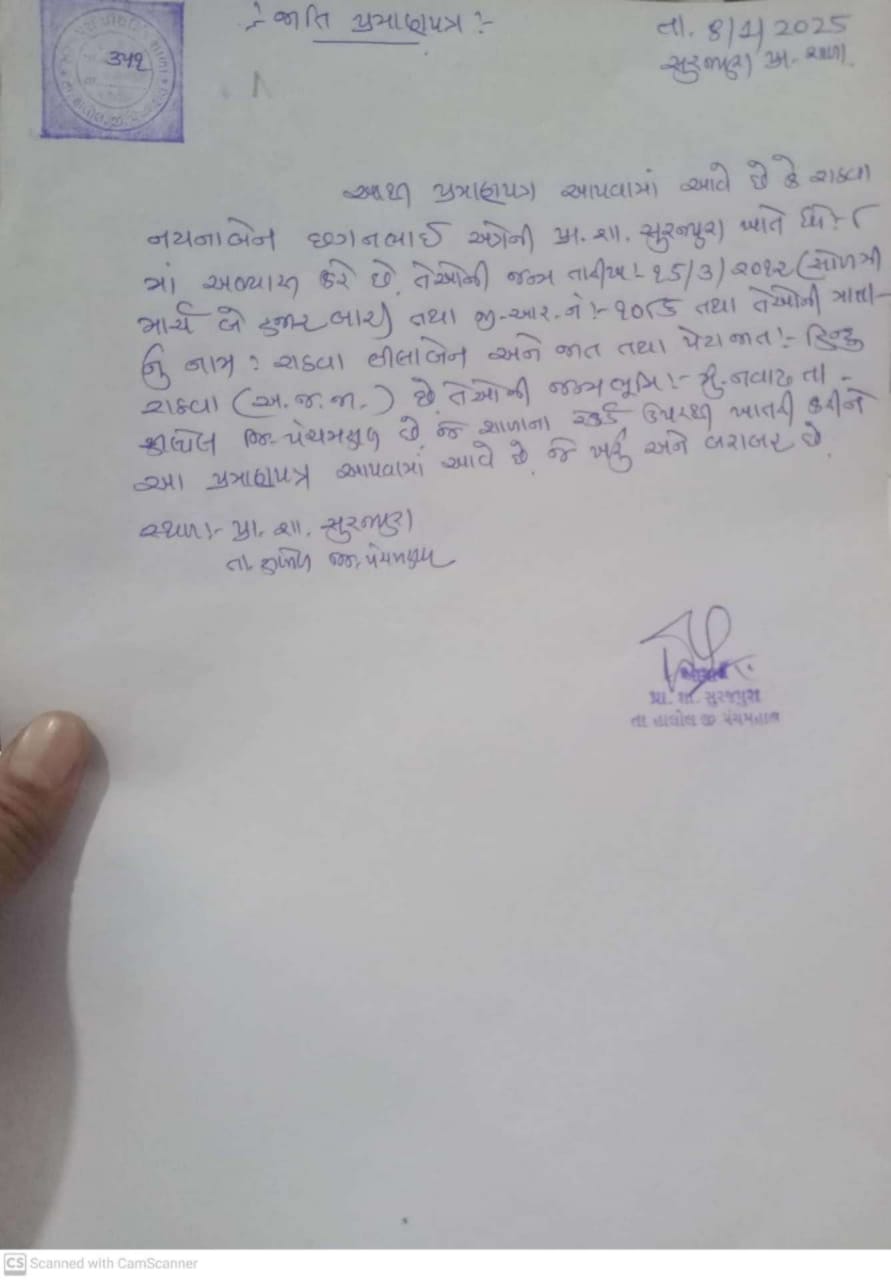 :- જાતિ પ્રમાણપત્ર :-
તા. 8/1/2025
સુરજપુરા પ્રા. શાળા.
૩૫૧
આથી પ્રમાણપત્ર આપવામાં આવે છે કે રાઠવા
નયનાબેન છગનભાઈ અત્રેની પ્રા. શા. સુરજપુરા ખાતે ધો :-
માં અભ્યાસ કરે છે. તેઓની જન્મ તારીખ :- ૧૫/3/૨૦૧૨ (સોળમી
માર્ચ બે હજાર બાર) તથા જી-આર.નં :- તથા તેઓની માતા-
નું નામ : રાઠવા લીલાબેન અને જાત તથા પેટાજાત :- હિન્દુ
રાઠવા (અ. જ. જા.) છે. તેઓની જન્મભૂમિ :- મુ. નવાઢ તા -
હાલોલ જિ. પંચમહાલ છે. જે શાળાના રેકર્ડ ઉપરથી ખાતરી કરીને
આ પ્રમાણપત્ર આપવામાં આવે છે. જે ખરું અને બરાબર છે.
સ્થળ :- પ્રા. શા. સુરજપુરા
તા. હાલોલ જિ. પંચમહાલ
આચાર્ય
પ્રા. શા. સુરજપુરા
તા હાલોલ જી પંચમહાલ
CS Scanned with CamScanner